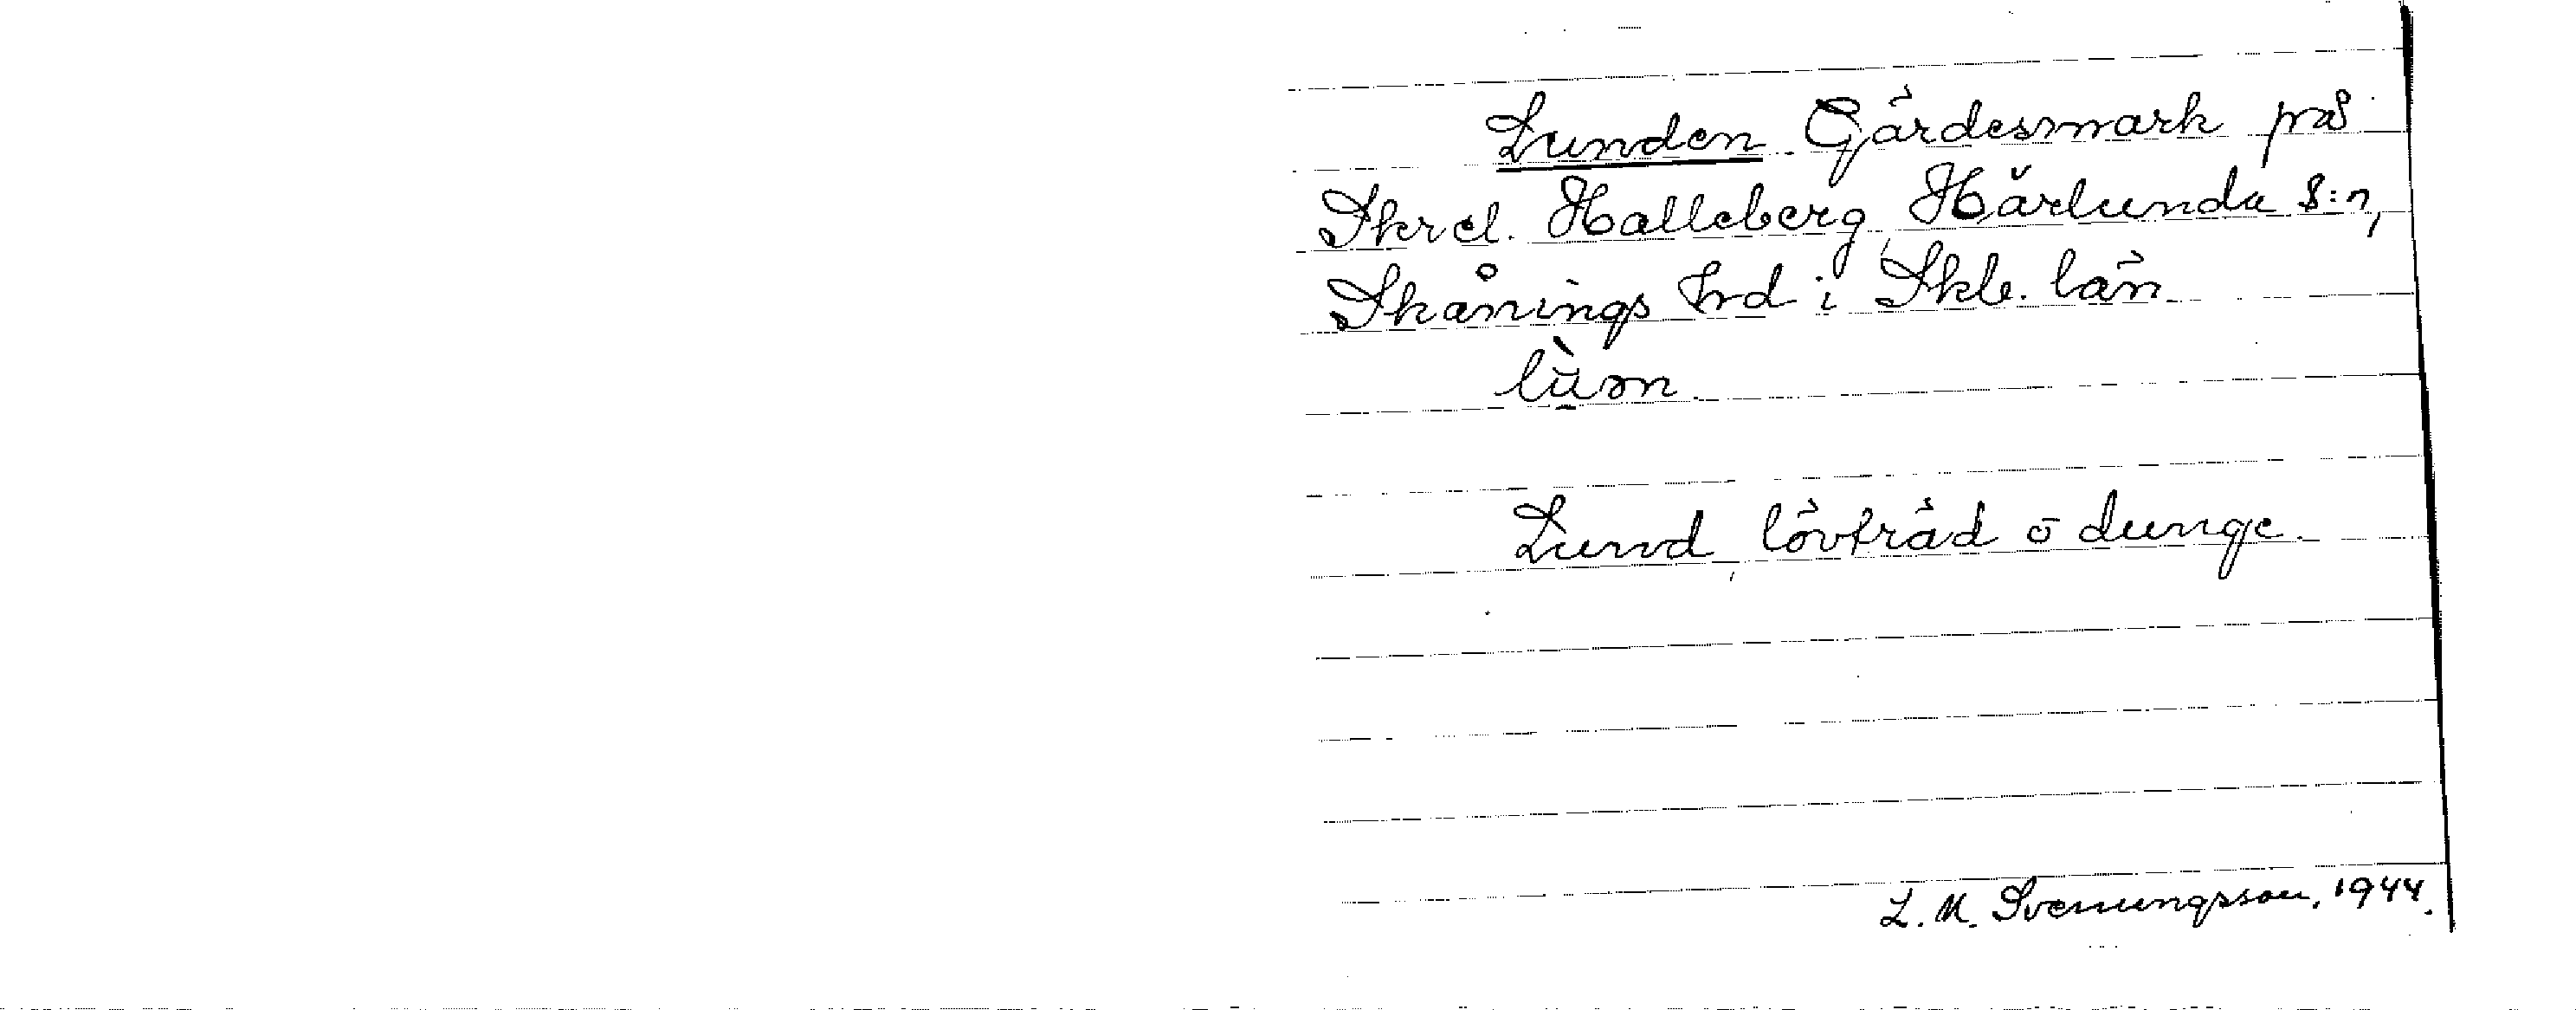 Lunden Gärdesmark på
Skrel. Halleberg, Härlunda s:n,
Skånings hrd i Skb. län
lùn̥
Lund, lövträd o dunge.
L. M. Svenungsson, 1944.